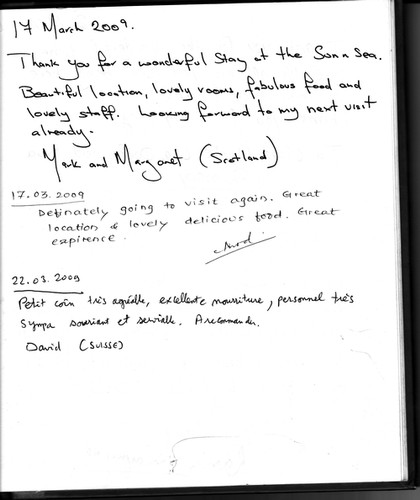 17 March 2009.
Thank you for a wonderful stay at the Sun n Sea.
Beautiful location, lovely rooms, fabulous food and
lovely staff. Looking forward to my next visit
already.
Mark and Margaret (Scotland)
17.03.2009
Definately going to visit again. Great
location & lovely delicious food. Great
expirence.
22.03.2009
Petit coin très agréable, excellente nourriture, personnel très
sympa souriant et serviable. A recommander.
David (SUISSE)